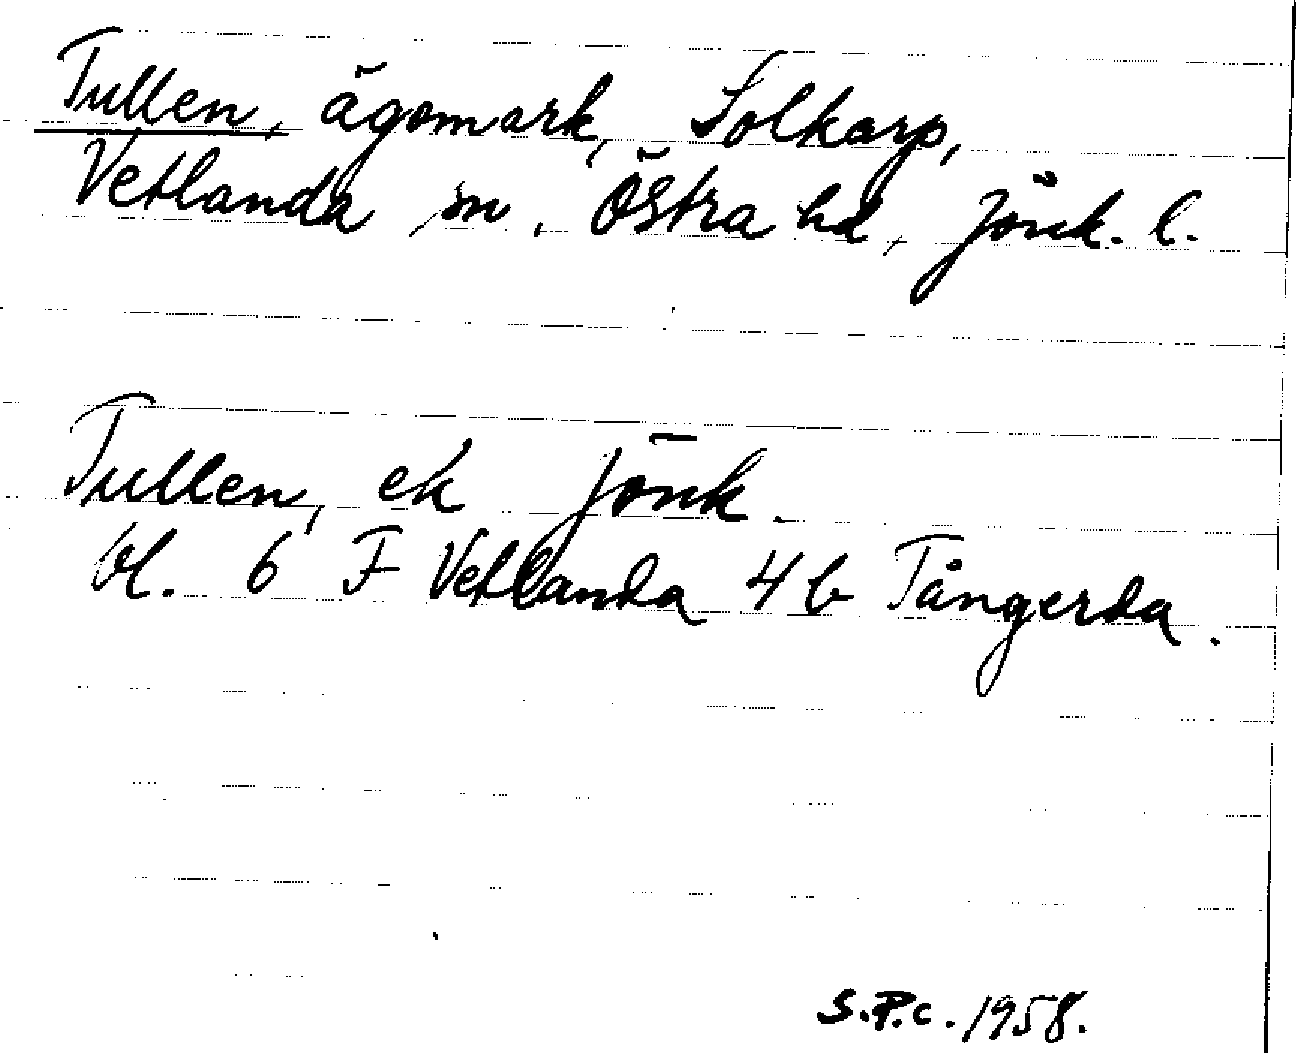 Tullen, ägomark, Solkarp,
Vetlanda sn, Östra hd, Jönk. l.
Tullen, ek Jönk.
bl. 6 F Vetlanda 4 b Tångerda.
S.P.C. 1958.